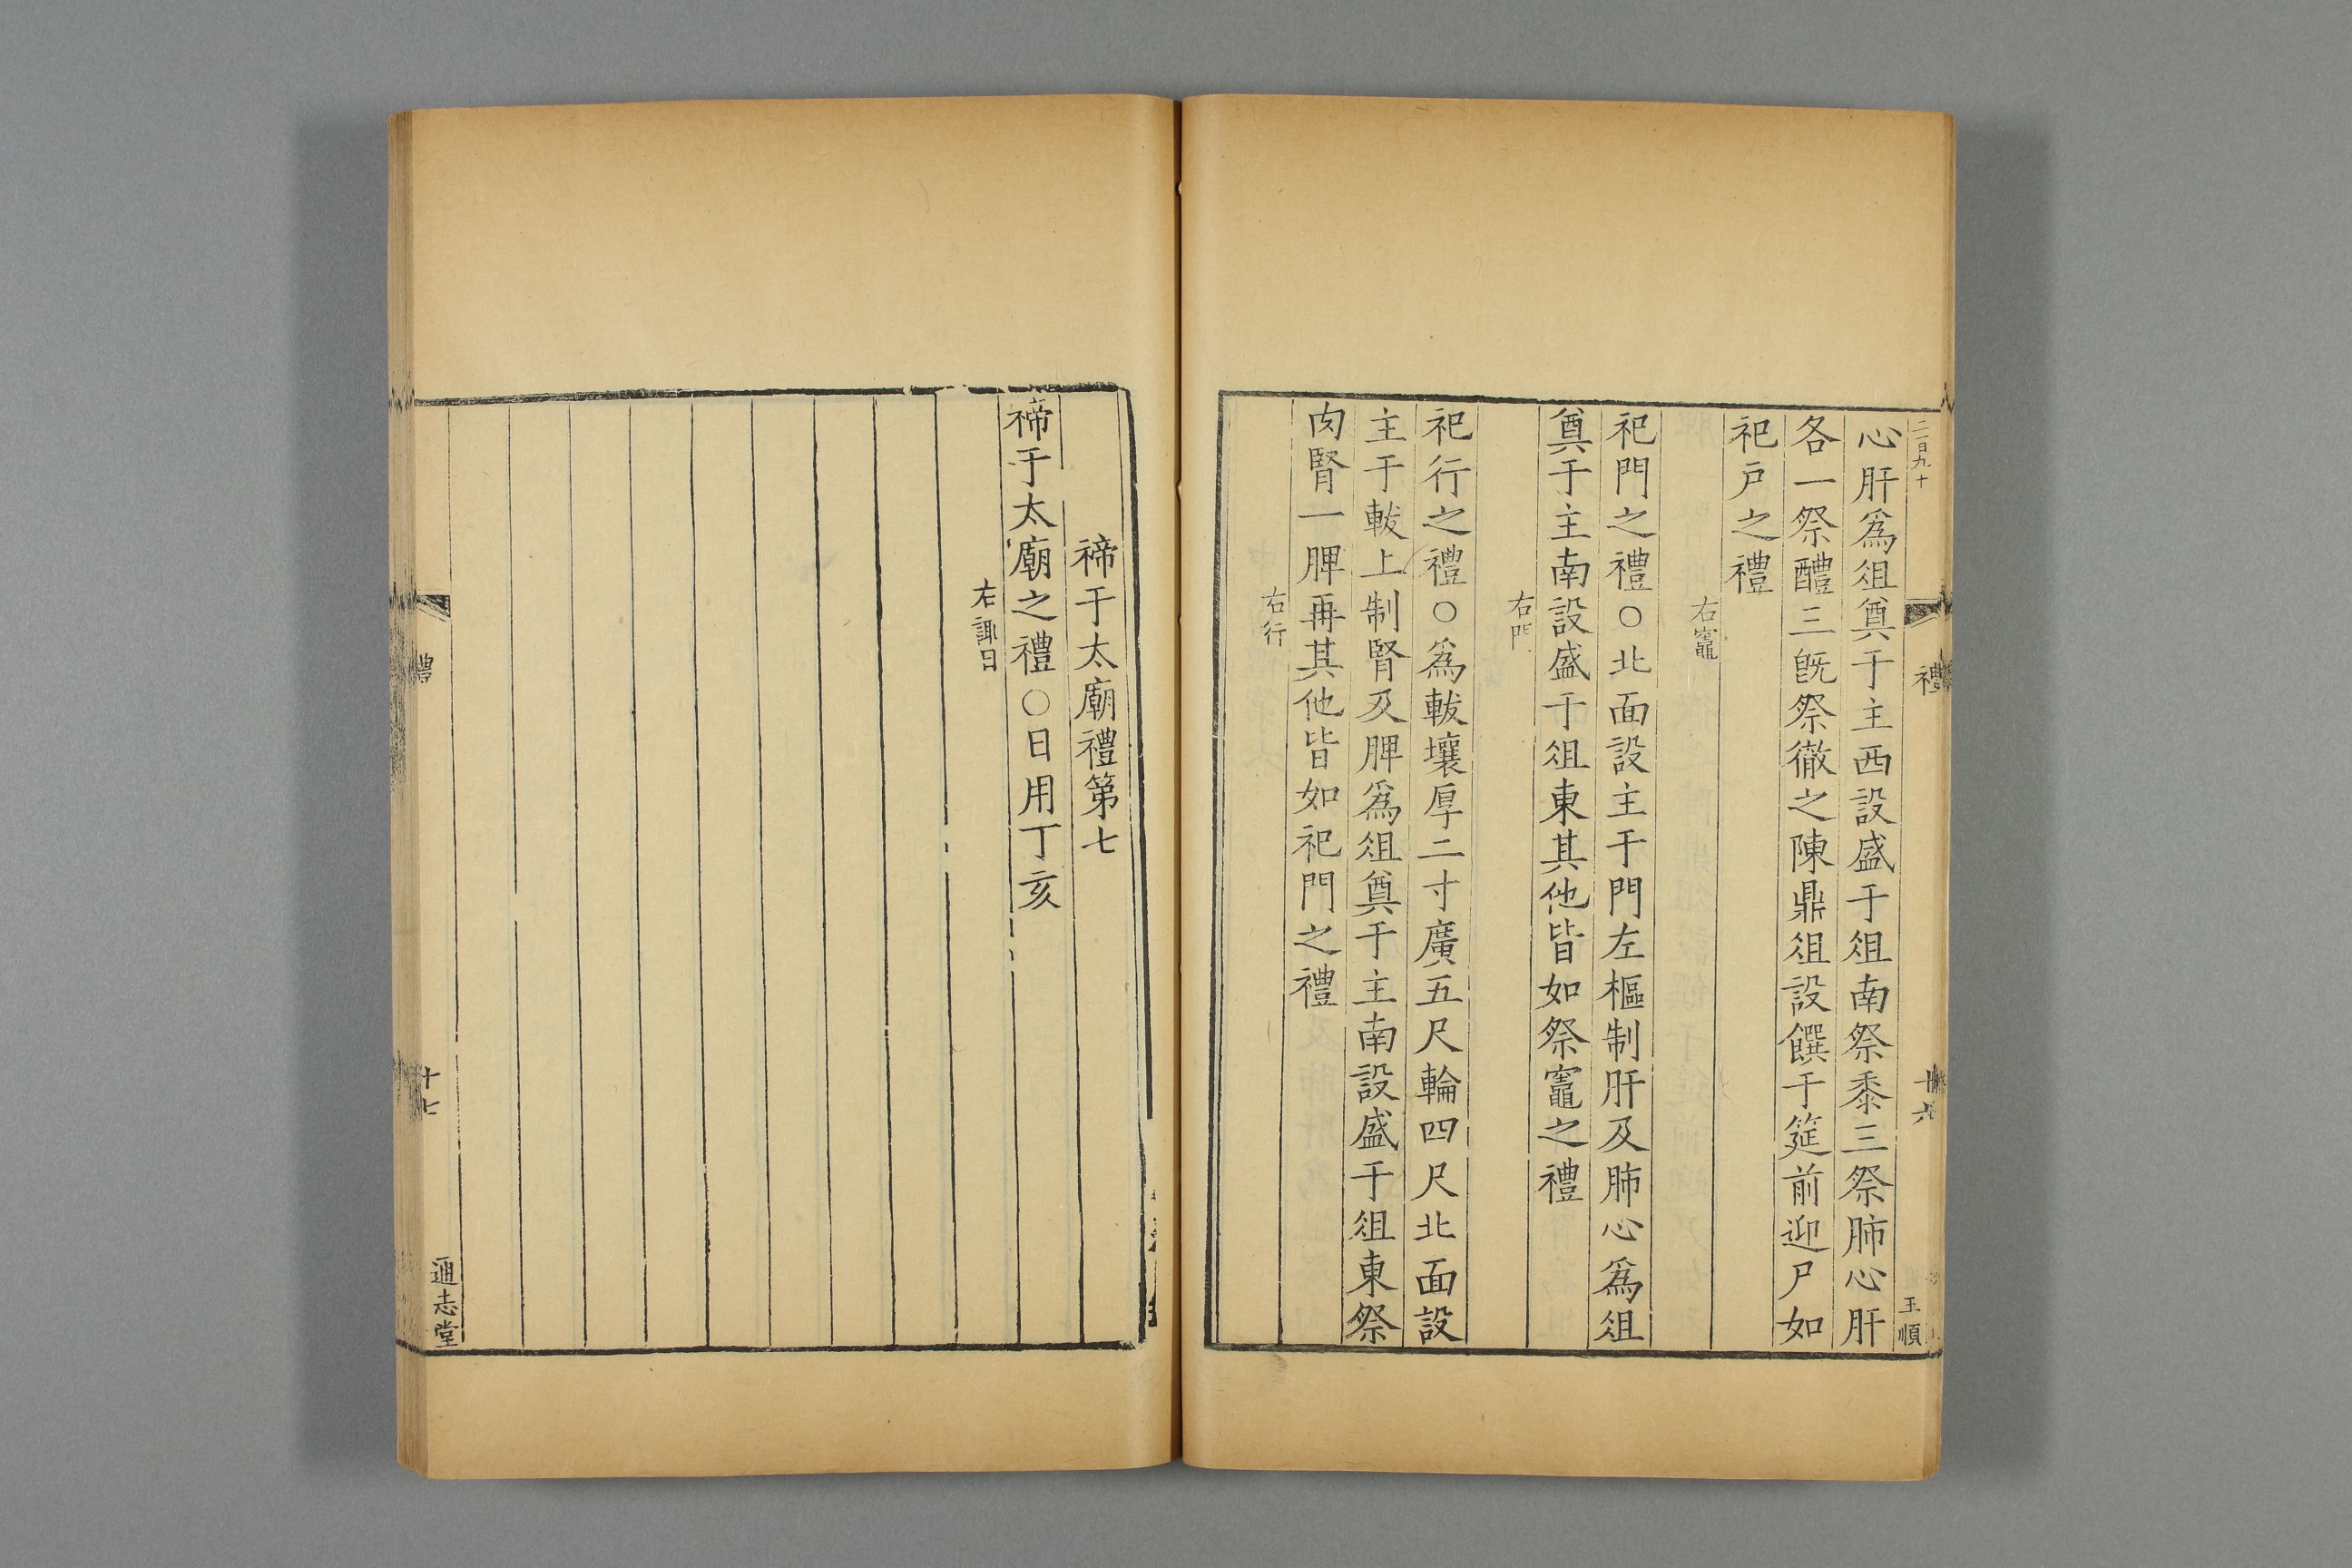 二百九十
禮
十六
王順
心肝爲俎奠于主西設盛于俎南祭黍三祭肺心肝
各一祭醴三旣祭徹之陳鼎俎設饌于筵前迎尸如
祀戶之禮
右竈
祀門之禮○北面設主于門左樞制肝及肺心爲俎
奠于主南設盛于俎東其他皆如祭竈之禮
右門
祀行之禮○爲軷壤厚二寸廣五尺輪四尺北面設
主于軷上制腎及脾爲俎奠于主南設盛于俎東祭
肉腎一脾再其他皆如祀門之禮
右行
禘于太廟禮第七
禘于太廟之禮○日用丁亥
右諏日
禮
十七
通志堂